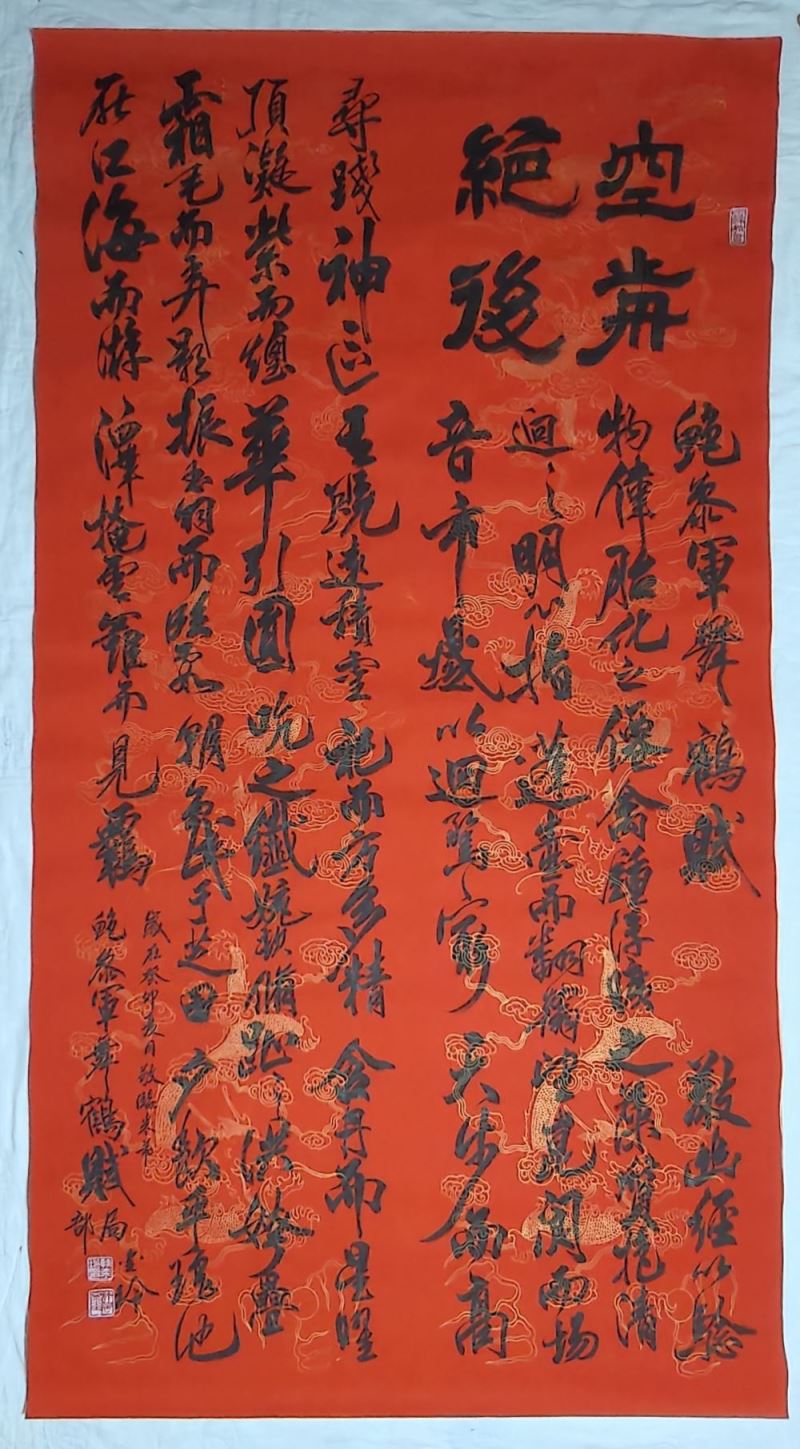 空歬
絶後
鮑參軍舞鶴賦 散幽經以驗
物偉胎化之僊禽鍾浮曠之藻質抱清
迥之明心指蓬壺而翻翰望崑閬而揚
音帀域以迴騖窮天步而高
尋踐神區其既遠積靈祀而方多精含丹而星曜
頂凝紫而煙華引圓吭之纖婉頓脩趾之洪姱疊
霜毛而弄影振玉羽而臨霞朝戲于芝田夕飲乎瑤池
厭江海而游澤掩雲羅而見羈
歲在癸卯月敬臨米芾
鮑參軍舞鶴賦局部